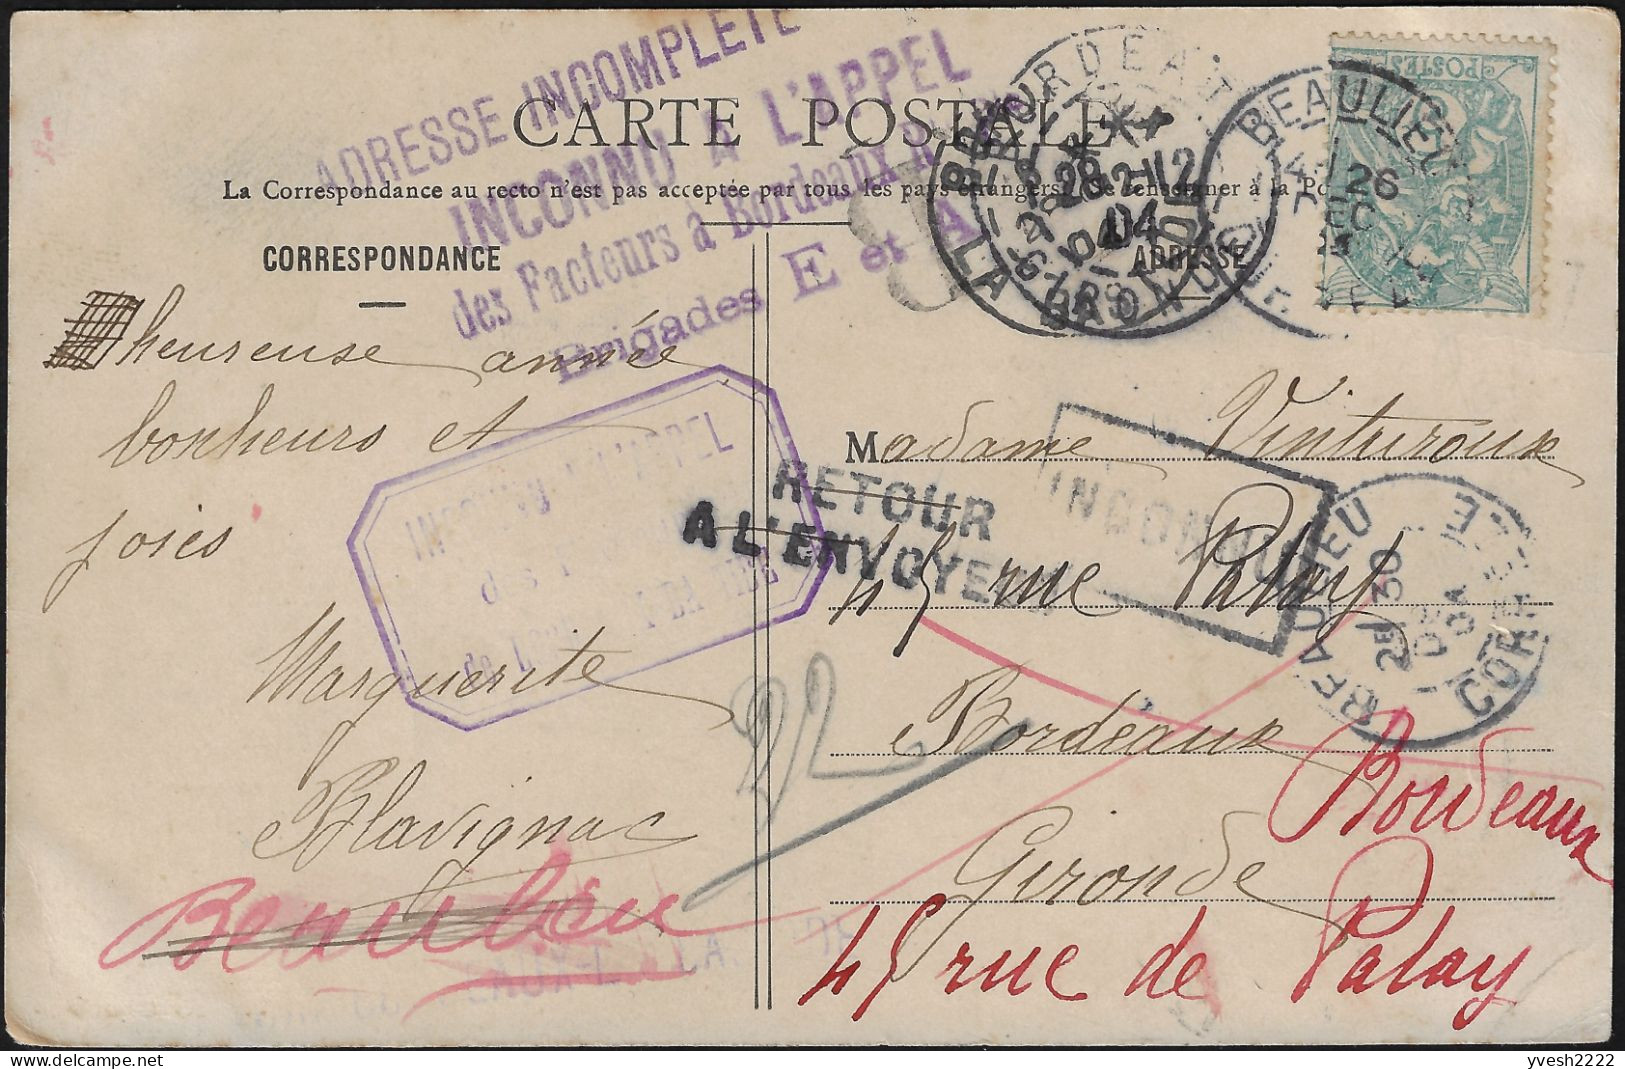 ADRESSE INCOMPLETE
INCONNU A L'APPEL
des Facteurs à Bordeaux
Brigades E et A
CARTE POSTALE
La Correspondance au recto n'est pas acceptée par tous les pays étrangers. (Se renseigner à la
BORDEAUX
28
04
LA
BEAULIEU
26
DEC
POSTES
CORRESPONDANCE
ADRESSE
heureuse année
bonheurs et
joies
Marguerite
Blavignac
Beaulieu
INCONNU A L'APPEL
RETOUR
A L'ENVOYEUR
INCONNU
BEAULIEU
30
CORREZE
22
Madame Vinturoux
45 rue Palay
Bordeaux
Gironde
Bordeaux
45 rue de Palay
yvesh2222